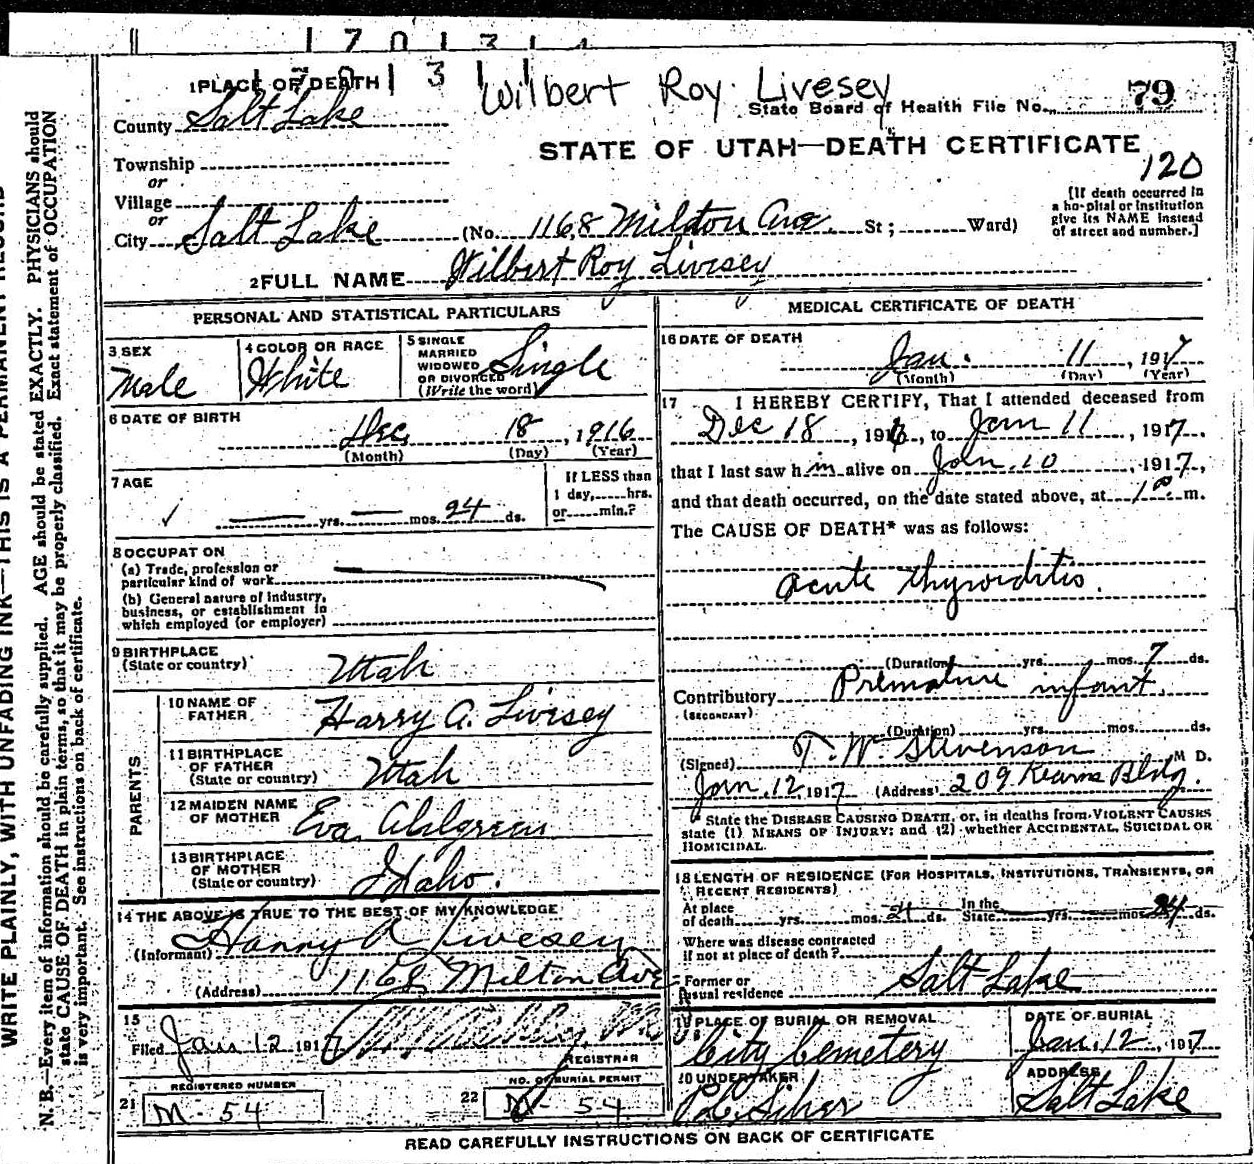 1 7 0 1 3 1 4
1 PLACE OF DEATH 1 7 0 1 3 1 1 Wilbert Roy Livesey
State Board of Health File No. 79
County Salt Lake
STATE OF UTAH—DEATH CERTIFICATE
120
Township
or
Village
or
City Salt Lake (No. 1168 Milton Ave. St; Ward)
[If death occurred in
a hospital or institution
give its NAME instead
of street and number.]
2 FULL NAME Wilbert Roy Livesey
PERSONAL AND STATISTICAL PARTICULARS
3 SEX
Male
4 COLOR OR RACE
White
5 SINGLE
MARRIED
WIDOWED
OR DIVORCED
(Write the word)
Single
6 DATE OF BIRTH
Dec. 18, 1916
(Month) (Day) (Year)
7 AGE
yrs. mos. 24 ds.
If LESS than
1 day, hrs.
or min.?
8 OCCUPAT ON
(a) Trade, profession or
particular kind of work
(b) General nature of industry,
business, or establishment in
which employed (or employer)
9 BIRTHPLACE
(State or country)
Utah
PARENTS
10 NAME OF
FATHER
Harry A. Livesey
11 BIRTHPLACE
OF FATHER
(State or country)
Utah
12 MAIDEN NAME
OF MOTHER
Eva Ahlgreen
13 BIRTHPLACE
OF MOTHER
(State or country)
Idaho.
14 THE ABOVE IS TRUE TO THE BEST OF MY KNOWLEDGE
(Informant) Harry A Livesey
(Address) 1168 Milton Ave
15
Filed Jan 12 1917
REGISTRAR
REGISTERED NUMBER
21 M-54
NO. OF BURIAL PERMIT
22 M-54
MEDICAL CERTIFICATE OF DEATH
16 DATE OF DEATH
Jan. 11, 1917
(Month) (Day) (Year)
17 I HEREBY CERTIFY, That I attended deceased from
Dec 18, 1916, to Jan 11, 1917.
that I last saw him alive on Jan. 10, 1917,
and that death occurred, on the date stated above, at 1 a. m.
The CAUSE OF DEATH* was as follows:
acute thyroiditis.
(Duration) yrs. mos. 7 ds.
Contributory Premature infant.
(SECONDARY)
(Duration) yrs. mos. ds.
(Signed) T. W. Stevenson M D.
Jan. 12, 1917 (Address) 209 Kearns Bldg.
* State the DISEASE CAUSING DEATH, or, in deaths from VIOLENT CAUSES
state (1) MEANS OF INJURY; and (2) whether ACCIDENTAL, SUICIDAL OR
HOMICIDAL.
18 LENGTH OF RESIDENCE (FOR HOSPITALS, INSTITUTIONS, TRANSIENTS, OR
RECENT RESIDENTS)
At place
of death yrs. mos. 24 ds. In the
State yrs. mos. 24 ds.
Where was disease contracted
if not at place of death?
Former or
usual residence Salt Lake
19 PLACE OF BURIAL OR REMOVAL
City Cemetery
DATE OF BURIAL
Jan. 12, 1917
20 UNDERTAKER
ADDRESS
Salt Lake
READ CAREFULLY INSTRUCTIONS ON BACK OF CERTIFICATE
WRITE PLAINLY, WITH UNFADING INK—THIS IS A PERMANENT RECORD
N. B.—Every item of information should be carefully supplied. AGE should be stated EXACTLY. PHYSICIANS should
state CAUSE OF DEATH in plain terms, so that it may be properly classified. Exact statement of OCCUPATION
is very important. See instructions on back of certificate.